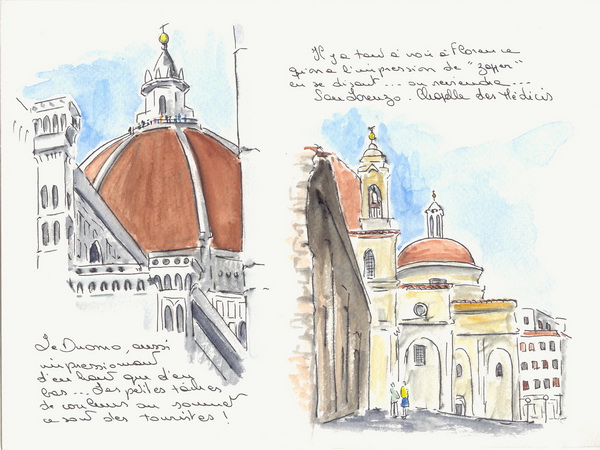 Il y a tant à voir à Florence
qu'on a l'impression de "zapper"
en se disant... on reviendra...
San Lorenzo. Chapelle des Médicis
Le Duomo, aussi
impressionnant
d'en haut que d'en
bas... des petites tâches
de couleurs au sommet
ce sont des touristes !